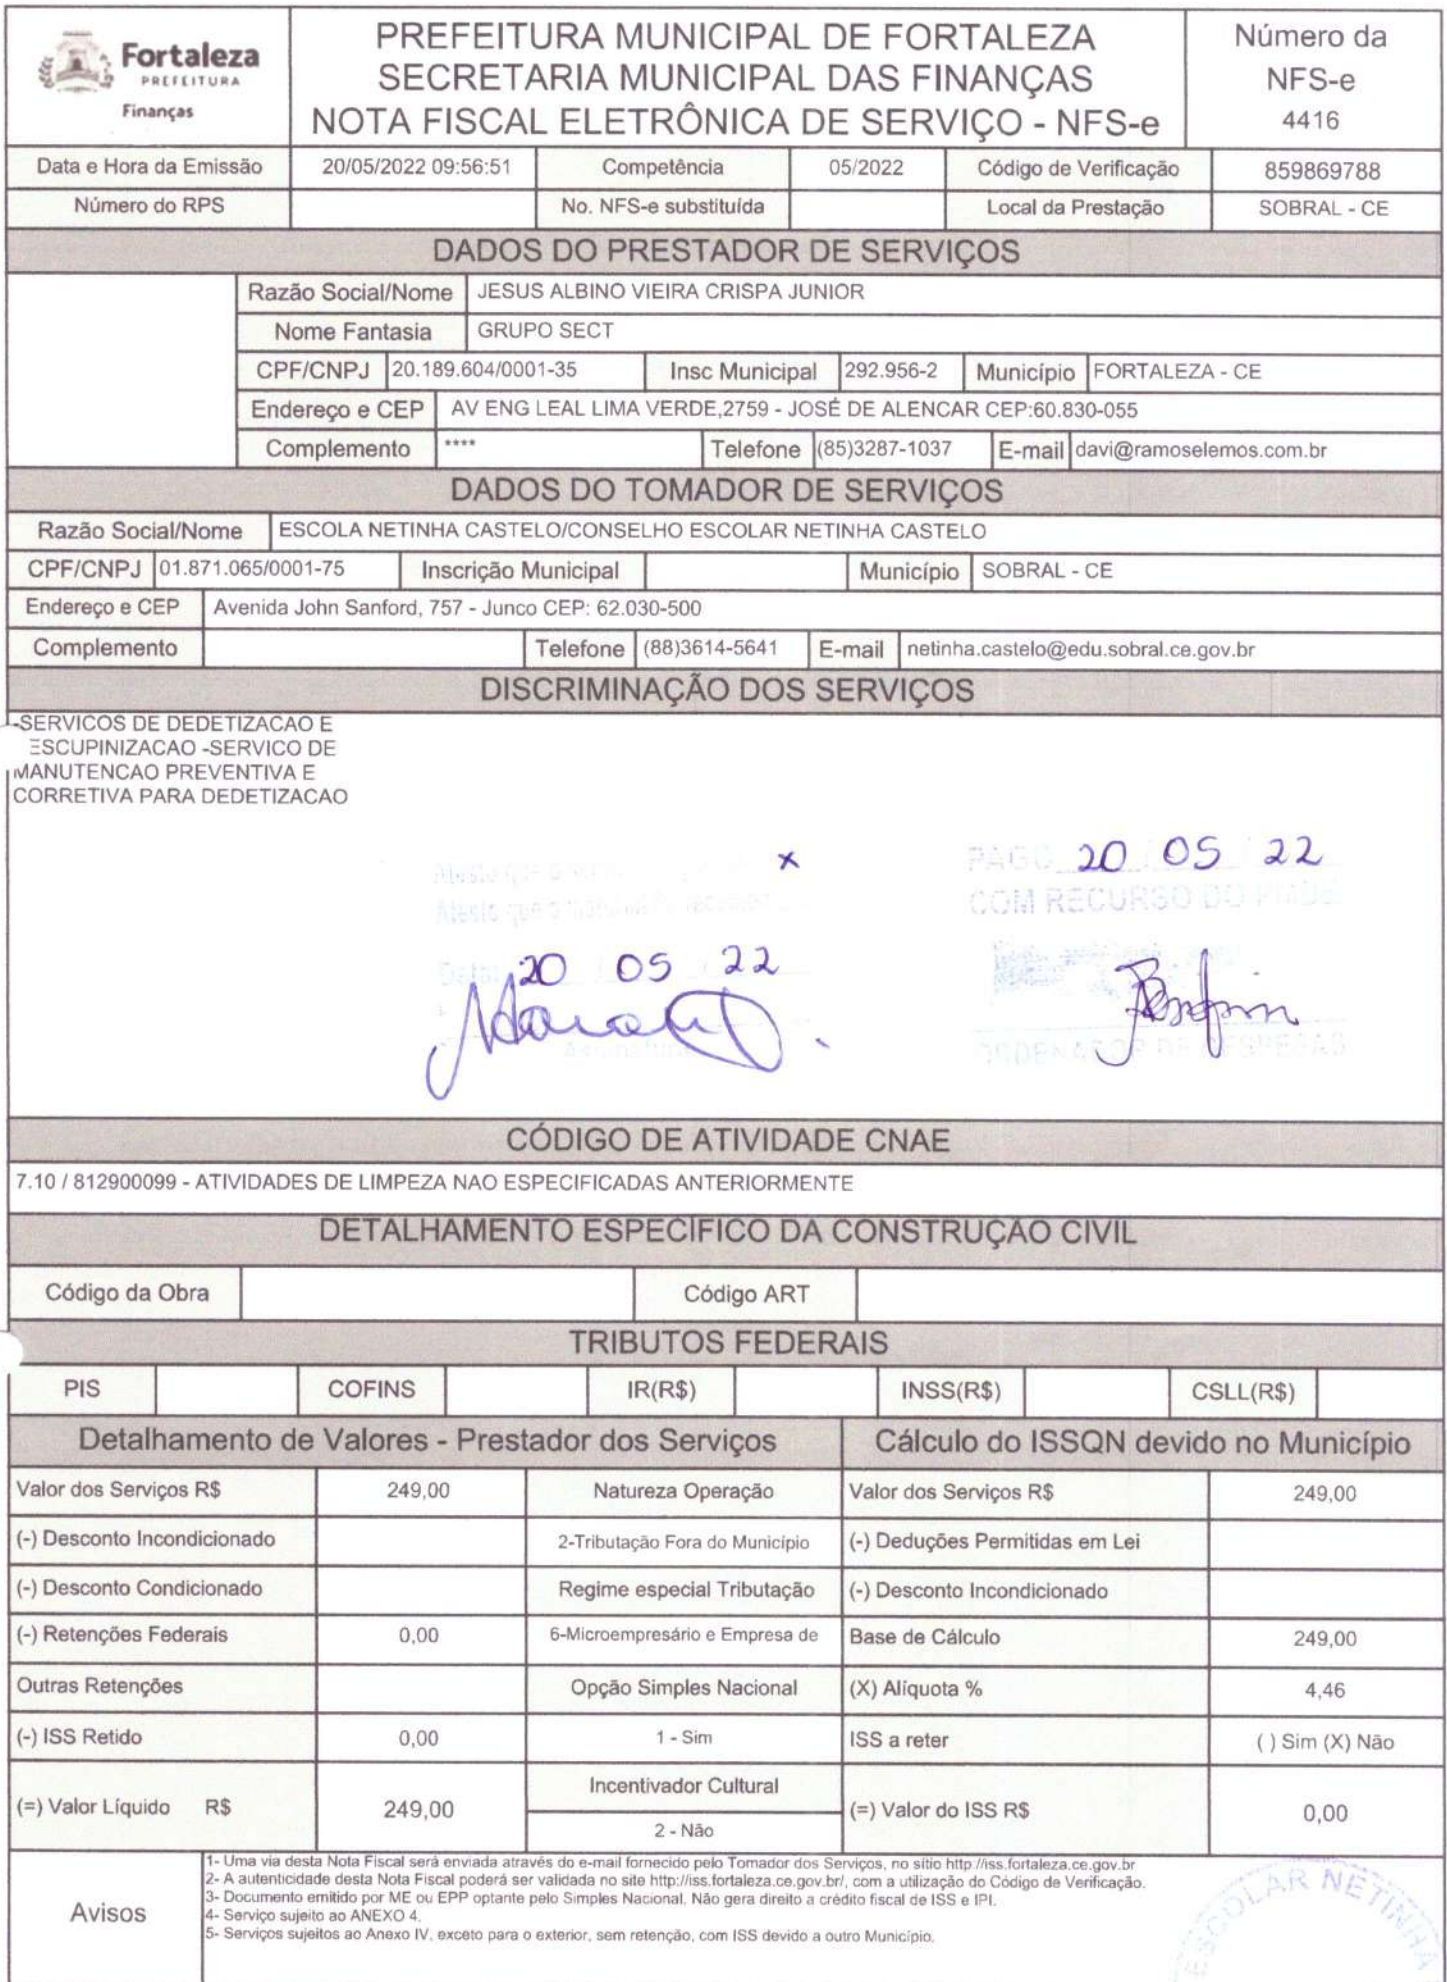 Fortaleza
PREFEITURA
Finanças
PREFEITURA MUNICIPAL DE FORTALEZA
SECRETARIA MUNICIPAL DAS FINANÇAS
NOTA FISCAL ELETRÔNICA DE SERVIÇO - NFS-e
Número da
NFS-e
4416
Data e Hora da Emissão 20/05/2022 09:56:51 Competência 05/2022 Código de Verificação 859869788
Número do RPS No. NFS-e substituída Local da Prestação SOBRAL - CE
DADOS DO PRESTADOR DE SERVIÇOS
Razão Social/Nome JESUS ALBINO VIEIRA CRISPA JUNIOR
Nome Fantasia GRUPO SECT
CPF/CNPJ 20.189.604/0001-35 Insc Municipal 292.956-2 Município FORTALEZA - CE
Endereço e CEP AV ENG LEAL LIMA VERDE,2759 - JOSÉ DE ALENCAR CEP:60.830-055
Complemento **** Telefone (85)3287-1037 E-mail davi@ramoselemos.com.br
DADOS DO TOMADOR DE SERVIÇOS
Razão Social/Nome ESCOLA NETINHA CASTELO/CONSELHO ESCOLAR NETINHA CASTELO
CPF/CNPJ 01.871.065/0001-75 Inscrição Municipal Município SOBRAL - CE
Endereço e CEP Avenida John Sanford, 757 - Junco CEP: 62.030-500
Complemento Telefone (88)3614-5641 E-mail netinha.castelo@edu.sobral.ce.gov.br
DISCRIMINAÇÃO DOS SERVIÇOS
-SERVICOS DE DEDETIZACAO E
ESCUPINIZACAO -SERVICO DE
MANUTENCAO PREVENTIVA E
CORRETIVA PARA DEDETIZACAO
x
PAGO 20 05 22
COM RECURSO DO
Atesto que o
Data: 20 05 22
Assinatura
ORDENADOR DE DESPESAS
CÓDIGO DE ATIVIDADE CNAE
7.10 / 812900099 - ATIVIDADES DE LIMPEZA NAO ESPECIFICADAS ANTERIORMENTE
DETALHAMENTO ESPECÍFICO DA CONSTRUÇÃO CIVIL
Código da Obra Código ART
TRIBUTOS FEDERAIS
PIS COFINS IR(R$) INSS(R$) CSLL(R$)
Detalhamento de Valores - Prestador dos Serviços Cálculo do ISSQN devido no Município
Valor dos Serviços R$ 249,00 Natureza Operação Valor dos Serviços R$ 249,00
(-) Desconto Incondicionado 2-Tributação Fora do Município (-) Deduções Permitidas em Lei
(-) Desconto Condicionado Regime especial Tributação (-) Desconto Incondicionado
(-) Retenções Federais 0,00 6-Microempresário e Empresa de Base de Cálculo 249,00
Outras Retenções Opção Simples Nacional (X) Alíquota % 4,46
(-) ISS Retido 0,00 1 - Sim ISS a reter ( ) Sim (X) Não
(=) Valor Líquido R$ 249,00 Incentivador Cultural (=) Valor do ISS R$ 0,00
2 - Não
Avisos
1- Uma via desta Nota Fiscal será enviada através do e-mail fornecido pelo Tomador dos Serviços, no sítio http://iss.fortaleza.ce.gov.br
2- A autenticidade desta Nota Fiscal poderá ser validada no site http://iss.fortaleza.ce.gov.br/, com a utilização do Código de Verificação.
3- Documento emitido por ME ou EPP optante pelo Simples Nacional. Não gera direito a crédito fiscal de ISS e IPI.
4- Serviço sujeito ao ANEXO 4.
5- Serviços sujeitos ao Anexo IV, exceto para o exterior, sem retenção, com ISS devido a outro Município.
ESCOLAR NETINHA